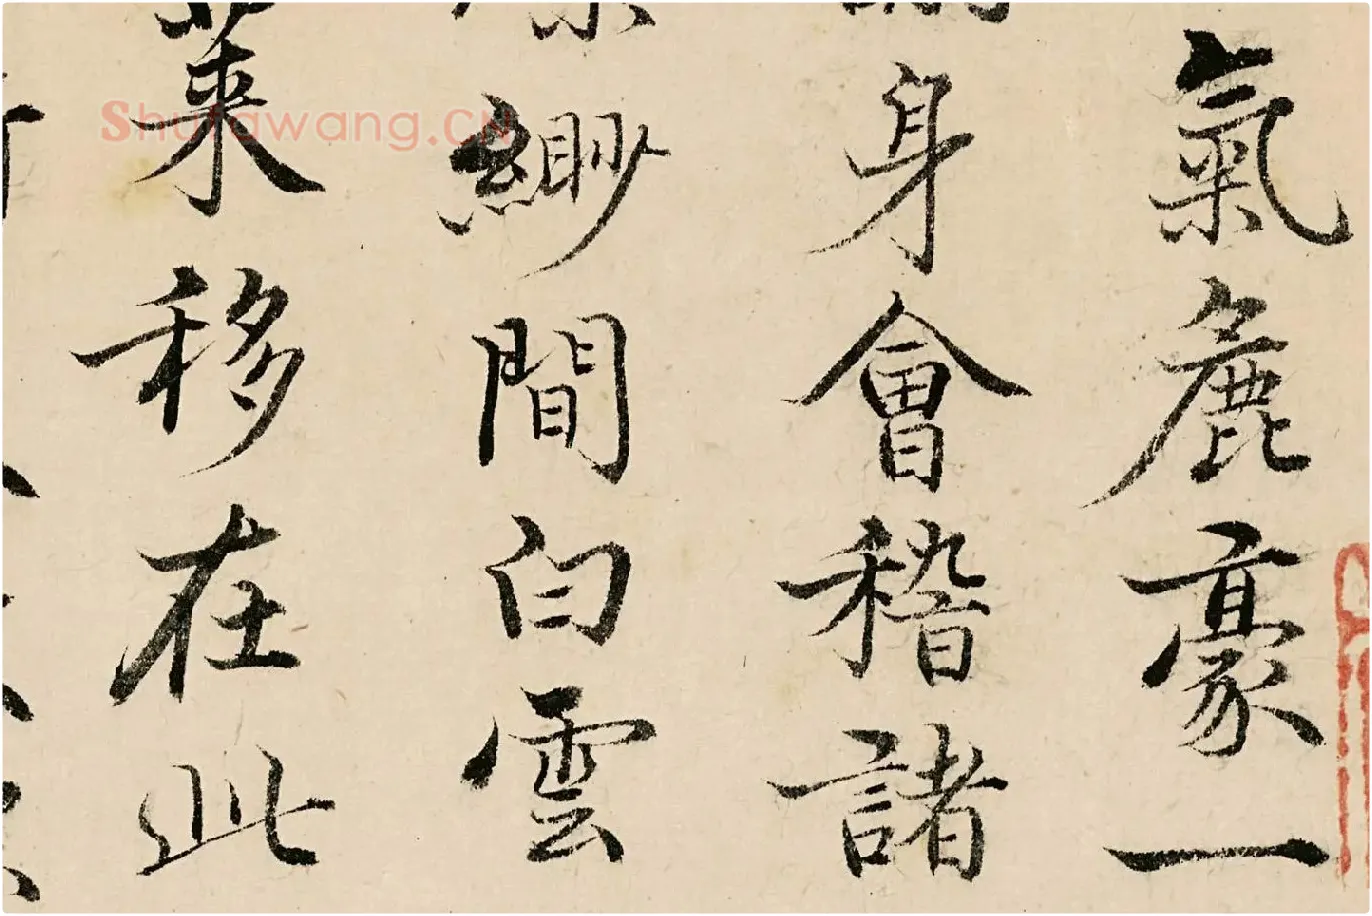 氣麁豪一
身會稽諸
緲間白雲
萊移在此
Shufawang.CN